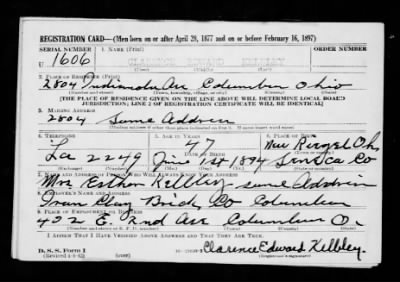 REGISTRATION CARD—(Men born on or after April 28, 1877 and on or before February 16, 1897)
SERIAL NUMBER 1. NAME (Print) ORDER NUMBER
U 1606 CLARENCE EDWARD KELBLEY
(First) (Middle) (Last)
2. PLACE OF RESIDENCE (Print)
2804 Indianola Ave Columbus Ohio
(Number and street) (Town, township, village, or city) (County) (State)
[THE PLACE OF RESIDENCE GIVEN ON THE LINE ABOVE WILL DETERMINE LOCAL BOARD
JURISDICTION; LINE 2 OF REGISTRATION CERTIFICATE WILL BE IDENTICAL]
3. MAILING ADDRESS
2804 Same Address
[Mailing address if other than place indicated on line 2. If same insert word same]
4. TELEPHONE 5. AGE IN YEARS 6. PLACE OF BIRTH
47 New Riegel Oh
DATE OF BIRTH
La 2249 June 1st 1894 Seneca Co
7. NAME AND ADDRESS OF PERSON WHO WILL ALWAYS KNOW YOUR ADDRESS
Mrs Esther Kelbley same Address
8. EMPLOYER'S NAME AND ADDRESS
Iron Clay Brick Co Columbus
9. PLACE OF EMPLOYMENT OR BUSINESS
492 E. 2nd Ave Columbus O.
(Number and street or R. F. D. number) (Town) (County) (State)
I AFFIRM THAT I HAVE VERIFIED ABOVE ANSWERS AND THAT THEY ARE TRUE.
D. S. S. Form 1
Clarence Edward Kelbley.
(Registrant's signature)